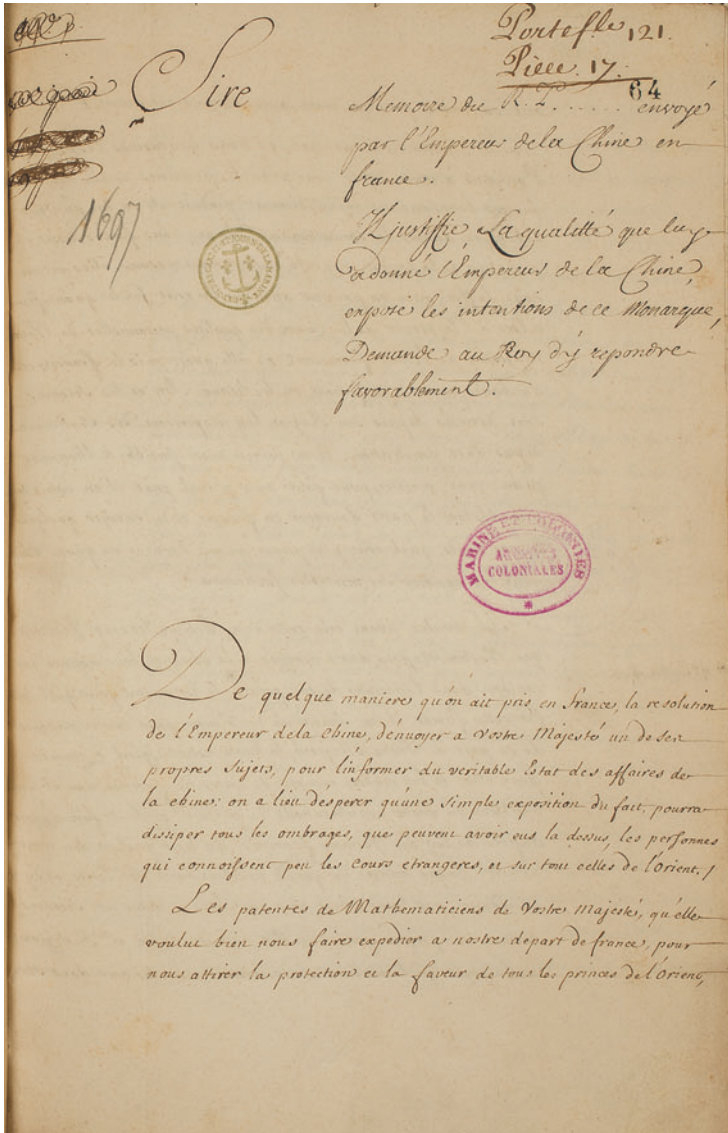 Portef.le 121.
Piece. 17.
64
Sire
Memoire du R. P. ...... envoyé
par l'Empereur dela Chine en
france.
1697
Il justiffie La qualitté que luy
a donné l'Empereur de la Chine,
expose les intentions de ce Monarque,
Demande au Roy d'y repondre
favorablement.
MARINE ET COLONIES
ARCHIVES
COLONIALES
De quelque maniere qu'on ait pris en france, la resolution
de l'Empereur dela Chine, d'envoyer a Vostre Majesté un de ses
propres Sujets, pour l'informer du veritable Estat des affaires de
la chine: on a lieu d'esperer qu'une simple exposition du fait, pourra
dissiper tous les ombrages, que peuvent avoir eus la dessus, les personnes
qui connoissent peu les Cours etrangeres, et sur tout celles de l'Orient. /
Les patentes de Mathematiciens de Vostre Majesté, qu'elle
voulut bien nous faire expedier a nostre depart de france, pour
nous attirer la protection et la faveur de tous les princes de l'Orient,